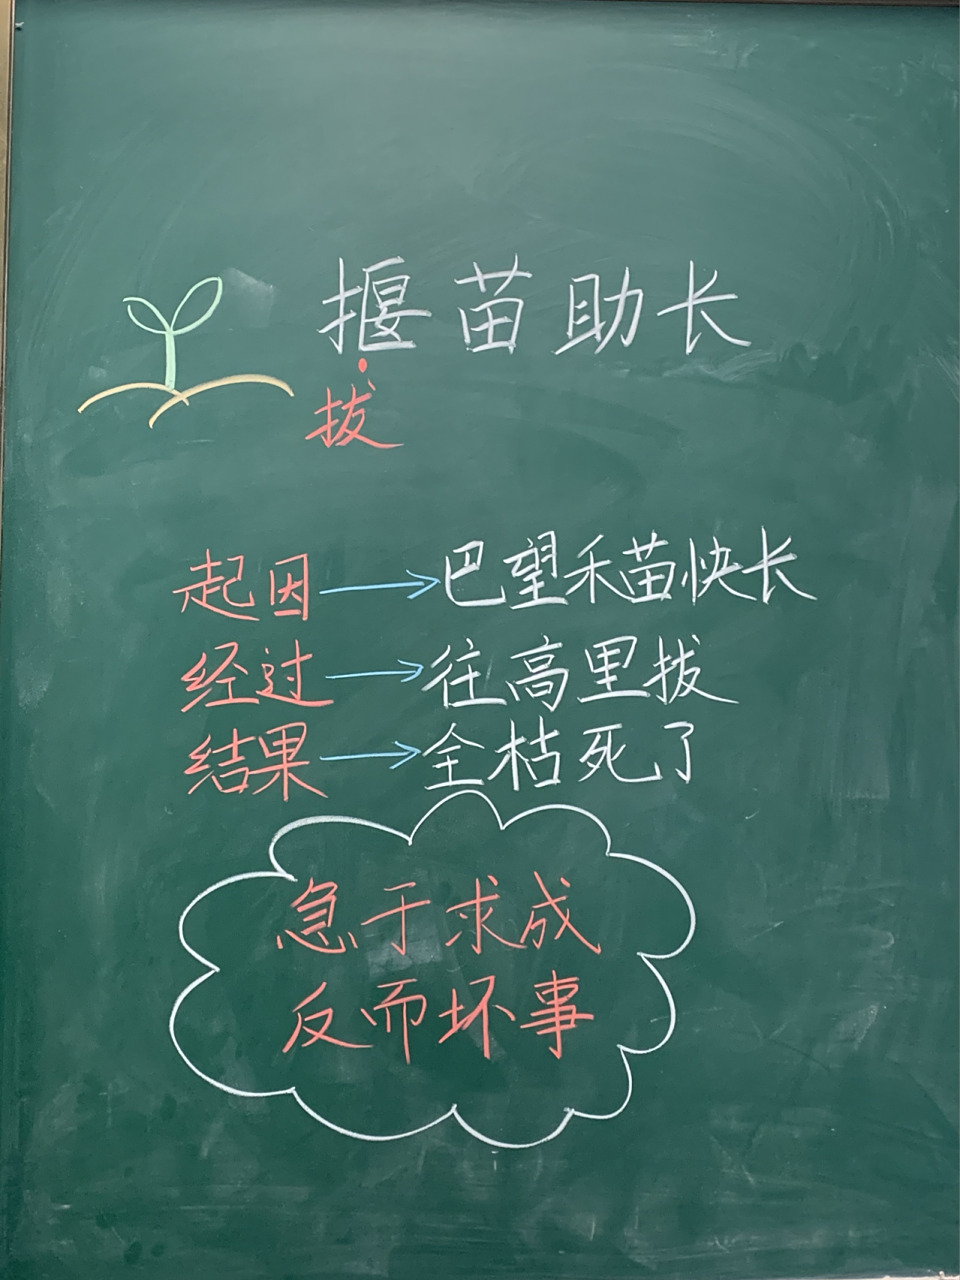 揠苗助长
拔
起因→巴望禾苗快长
经过→往高里拔
结果→全枯死了
急于求成
反而坏事